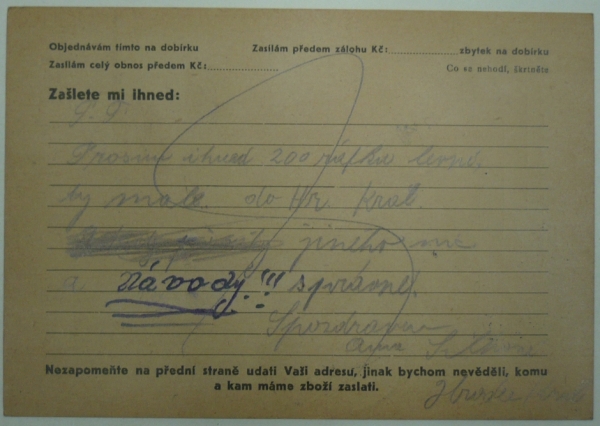 Objednávám tímto na dobírku Zasílám předem zálohu Kč: zbytek na dobírku
Zasílám celý obnos předem Kč: Co se nehodí, škrtněte
Zašlete mi ihned:
Prosím ihned 200
ty malé do Hr. Král.
jiného
a návody!!! správné.
S pozdravem
Nezapomeňte na přední straně udati Vaši adresu, jinak bychom nevěděli, komu
a kam máme zboží zaslati.